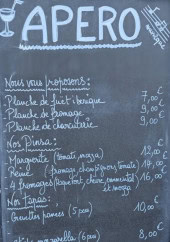 APERO
Nous vous proposons :
Planche de fuet iberique 7,00 €
Planche de fromage 9,00 €
Planche de charcuterie 9,00 €
Nos Pinsa :
Margherite (tomate, mozza) 12,00 €
Reine (fromage, champignons, tomate) 14,00 €
4 fromages (roquefort, chèvre, emmental 16,00 €
et mozza)
Nos Tapas :
Gambas panées (5 pces) 10,00 €
mozzarella (6 pces) 8,00 €